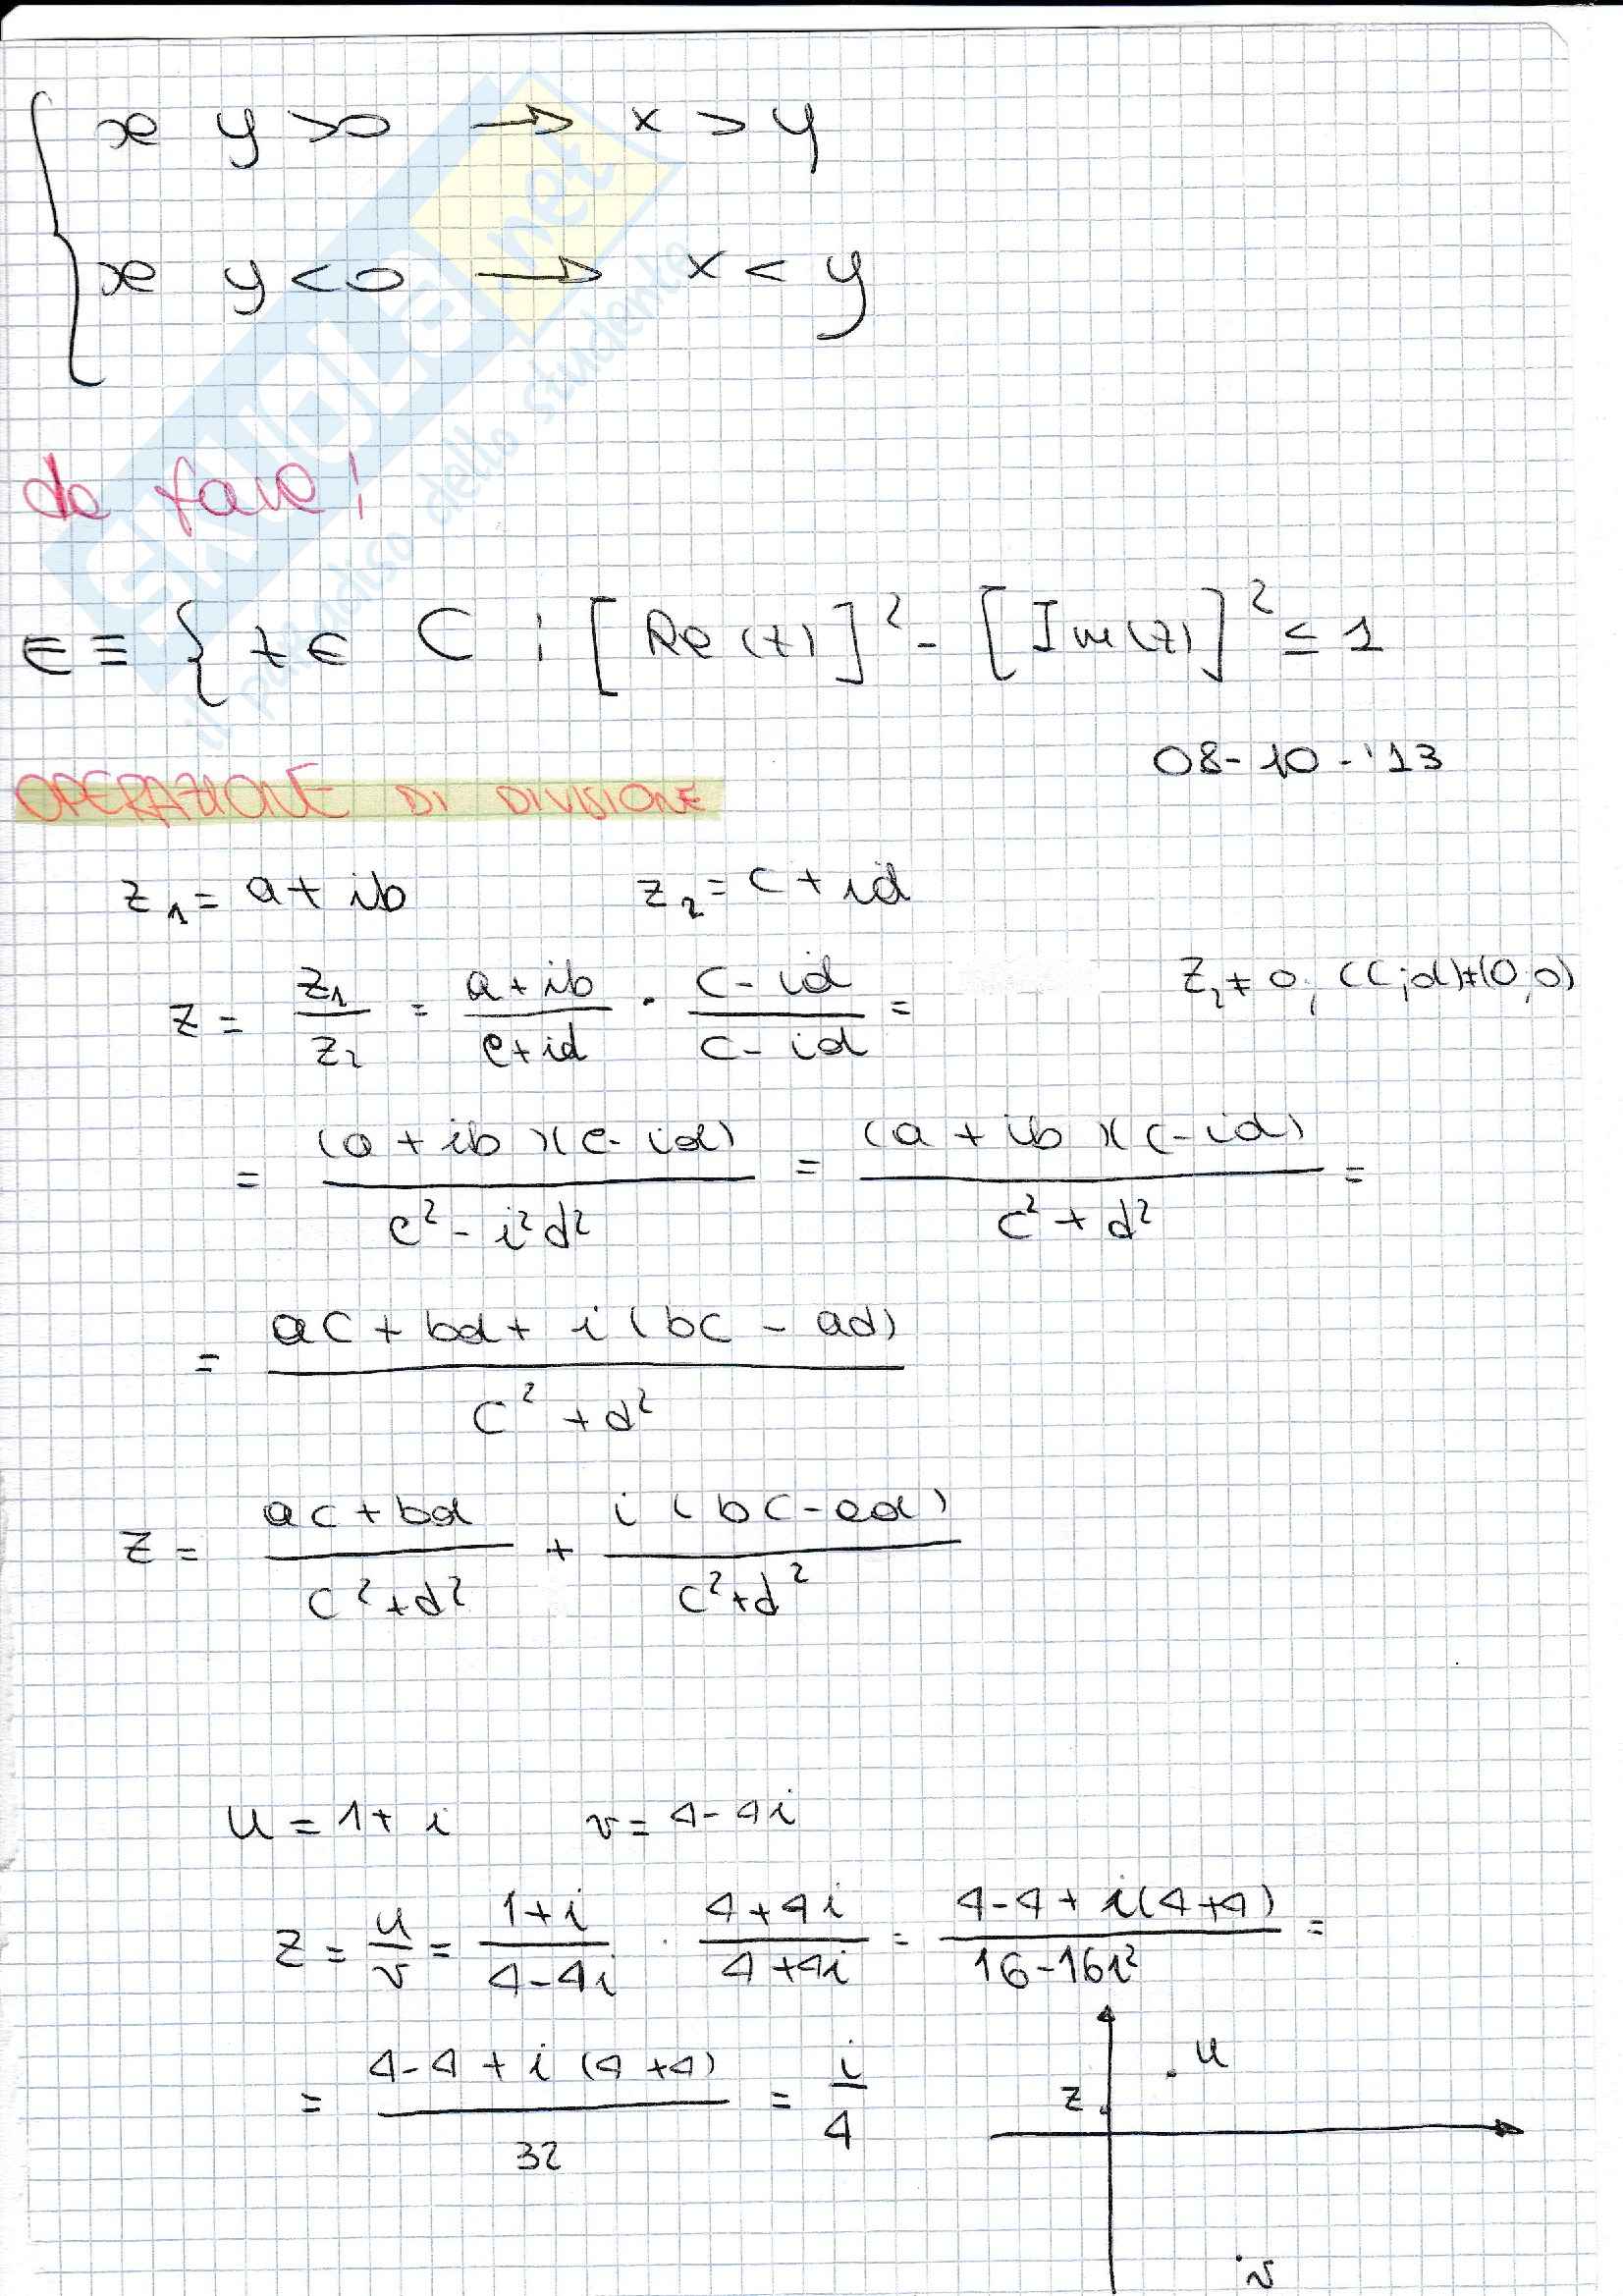 se y > 0 → x > y
se y < 0 → x < y
da fare:
E ≡ { z ∈ C : [Re(z)]² - [Im(z)]² ≤ 1
08-10-'13
OPERAZIONE DI DIVISIONE
z₁ = a + ib z₂ = c + id
z = z₁/z₂ = (a+ib)/(c+id) · (c-id)/(c-id) = z₂ ≠ 0; (c;d) ≠ (0;0)
= (a+ib)(c-id)/(c² - i²d²) = (a+ib)(c-id)/(c² + d²) =
= (ac + bd + i(bc - ad))/(c² + d²)
z = (ac+bd)/(c²+d²) + i(bc-ad)/(c²+d²)
u = 1 + i v = 4 - 4i
z = u/v = (1+i)/(4-4i) · (4+4i)/(4+4i) = (4-4+i(4+4))/(16-16i²) =
= (4-4+i(4+4))/32 = i/4
u
z
v
SKUOLA.net
il paradiso dello studente